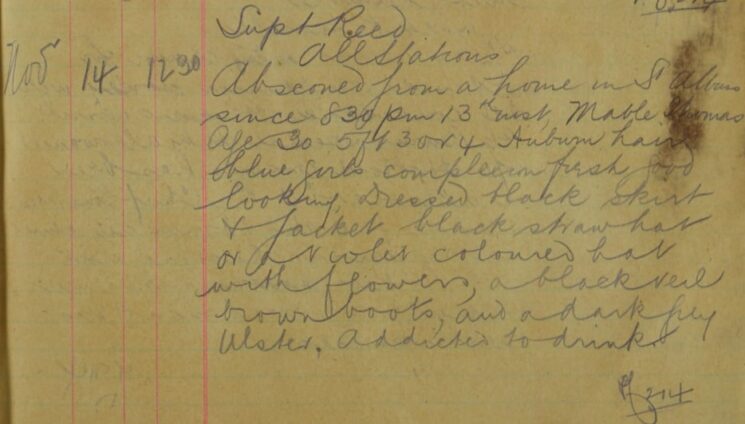 Supt Reed
All Stations
Nov 14 12 30 Absconed from a home in St Albans
since 8 30 pm 13th inst, Mable Thomas
Age 30 5ft 3 or 4 Auburn hair
blue complexion fresh good
looking Dressed black skirt
& Jacket black straw hat
or a violet coloured hat
with flowers, a black veil
brown boots, and a dark grey
Ulster. Addicted to drink
214